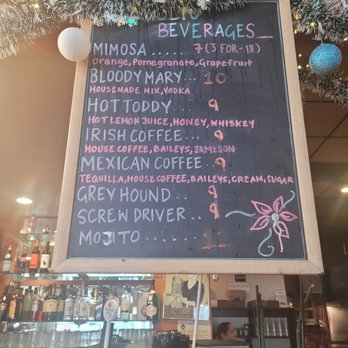 BEVERAGES
MIMOSA ..... 7 (3 FOR-18)
Orange, Pomegranate, Grapefruit
BLOODY MARY... 10
HOUSEMADE MIX, VODKA
HOT TODDY .. 9
HOT LEMON JUICE, HONEY, WHISKEY
IRISH COFFEE.. 9
HOUSE COFFEE, BAILEYS, JAMESON
MEXICAN COFFEE.. 9
TEQUILLA, HOUSE COFFEE, BAILEYS, CREAM, SUGAR
GREY HOUND .. 9
SCREW DRIVER .. 9
MOJITO ....